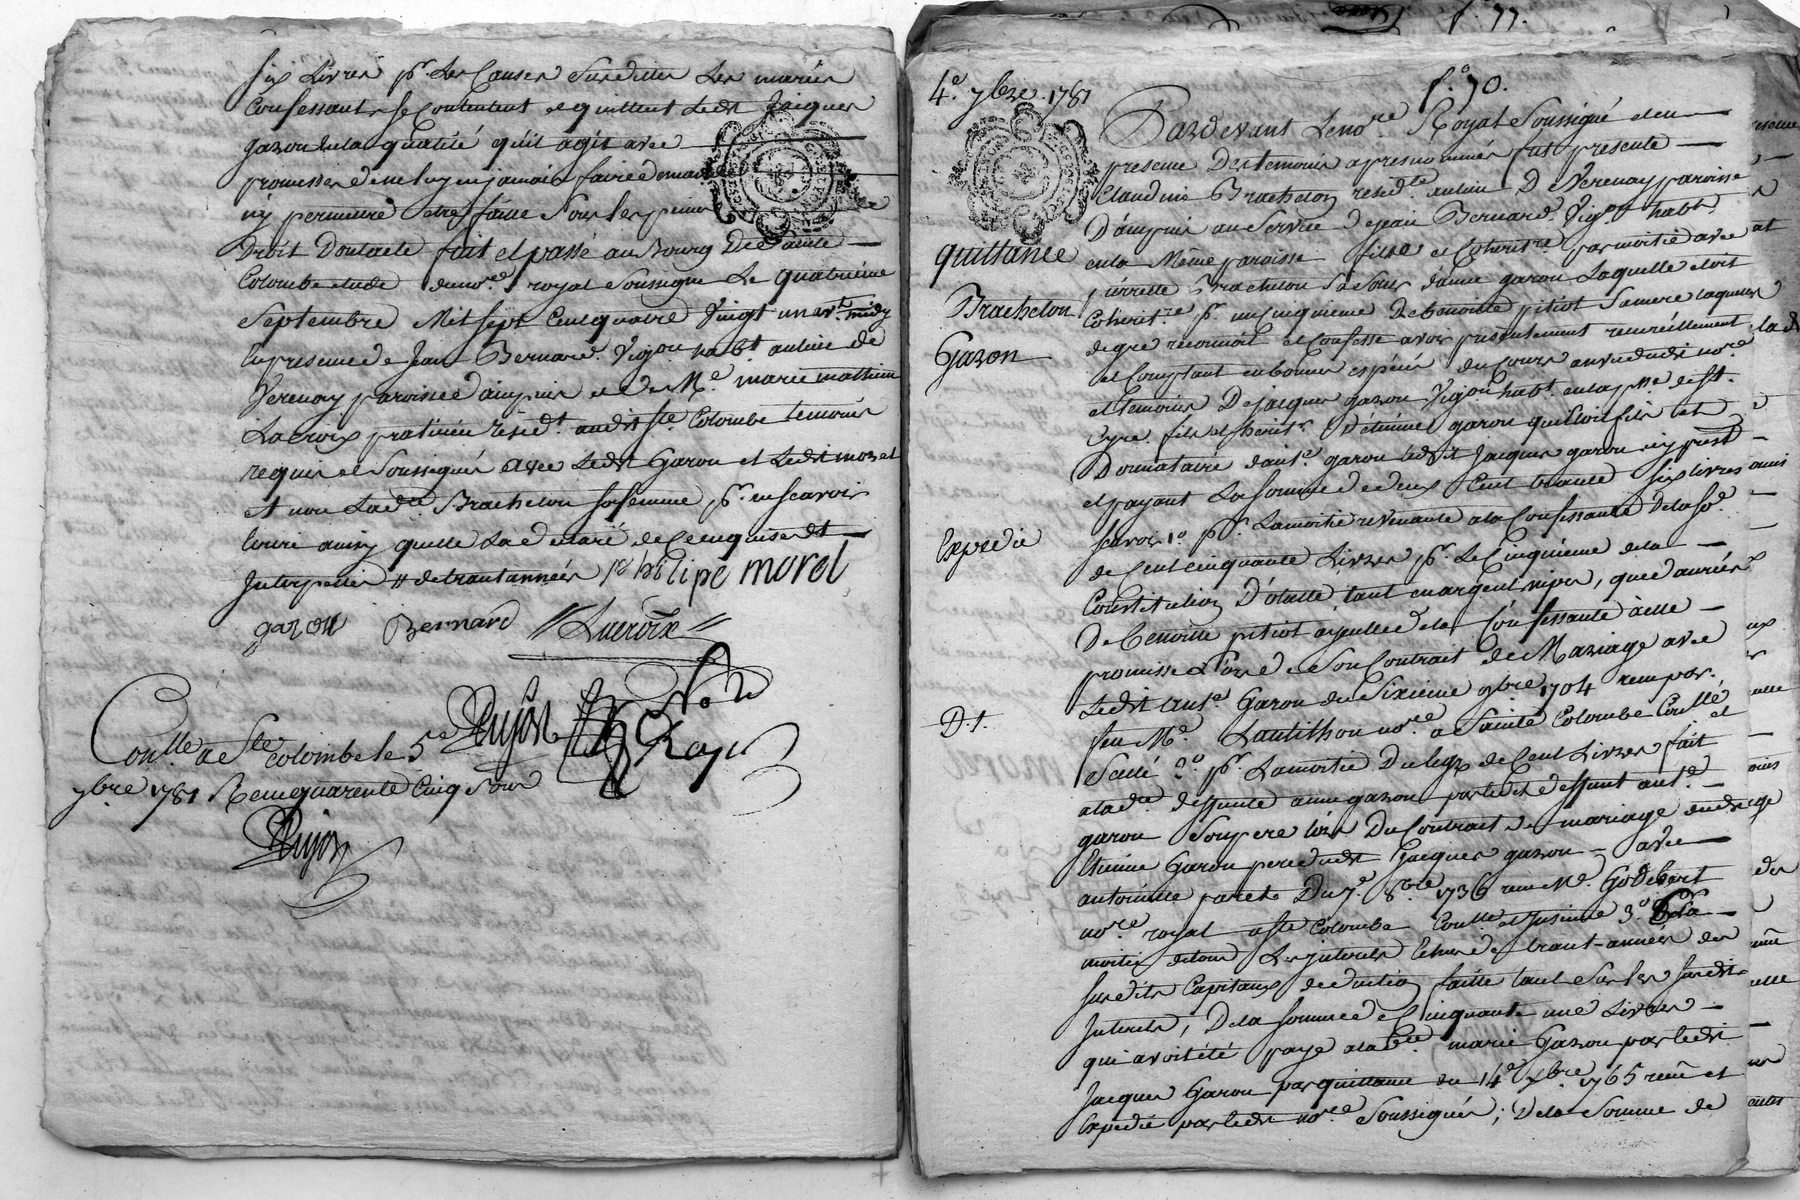 six Livres pr. Les Causes Susdittes Les mariés
Confessants se Contentent et quittent Ledit Jacques
gazon en la qualité qu'il agit avec
promesses de ne luy en jamais faire demande
ny permettre etre faitte Sous les peines
Droit Dont acte fait et passé au Bourg De Sainte
Colombe etude du nore. royal Soussigné Le quatrieme
Septembre Mil sept Cent quatre Vingt un avt. midy
en presence de Jean Bernard Vigon habt. au lieu de
Verenay paroisse d'ampuis et de Me. marie mathieu
Lacroix praticien résidt. audit Ste Colombe temoins
requis et Soussignés avec Ledit Garon et Ledit morel
et non Ladte Brachelon sa femme pr. ne scavoir
ecrire ainsy quelle La declaré de ce enquise et
Interpellée # de trant années philipe morel
garon Bernard Lacroix
Dujon
Nore
Royal
Conlle. a Ste Colombe le 5e
7bre 1781 Recu quarente Cinq Sous
Dujon
f. 77.
4e. 7bre. 1781
fo. 70.
Pardevant Le nore. Royal Soussigné et en
presence Des temoins apres nommés fut presente
Claudine Brachelon residte au lieu De Verenay paroisse
D'ampuis au Service de Jean Bernard Vigon habt.
en la Même paroisse fille et Coheritre par moitié avec
quittance
pierrette Brachelon Sa Sœur d'anne garon Laquelle etoit
Brachelon
Coheritre pr. un Cinquieme De benoite pitiot Sa mere laquelle
Gazon
de gré reconnoit et Confesse avoir presentement reéellement
et Comptant en bonnes especes du Cours au vu dudit nore
et temoins De jacques gazon Vigon habt. en la psse de St.
Cyre fils et herite. D'étienne garon qui Etoit fils et
Donnataire d'ante. garon ledit Jacques garon icy prest
et payant La Somme de deux Cent trante Six livres
Expedie
scavoir 1o. pr. La moitié revenante a la Confessante De la Se.
de Cent cinquante Livres pr. Le Cinquieme de la
Constitution Dotalle tant en argent
De benoite pitiot ayeulle de la Confessante à elle
promise Lors de Son Contrat de Mariage avec
Ledit ante Garon du Sixieme 9bre 1704 recu par
D.t.
feu Me. Lantillhon nore a Sainte Colombe Conllé et
Scellé 2o. pr. La moitié Du legs de Cent Livres fait
a la dte deffunte anne gazon par ledit deffunt ante.
garon Son pere lors Du Contrat de mariage dudit
Etienne Garon pere dudit Jacques gazon avec
antoinette paret Du 7e. 8bre 1736 recu Me. Godebert
nore royal a Ste Colombe Conlle. et Insinué 3o. Pr la
moitié de tous Les interets Echus de trant-années des
susdits Capitaux deduction faitte tant Sur les Susdits
Interets, De la Somme de Cinquante une Livres
qui avoit été payé a ladte marie Garon par ledit
Jacques Garon par quittance du 14e 7bre. 1765 recüe et
Expedié par ledit nore Soussigné; De la Somme de